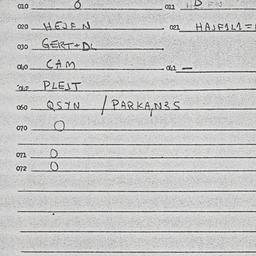 010 0 011
020 HEJEN 021 HAJF1L1=
030 GERT+DL
040 CAM 041 —
PLEJT
060 QSYN / PARKA,N35
070 0
071 0
072 0